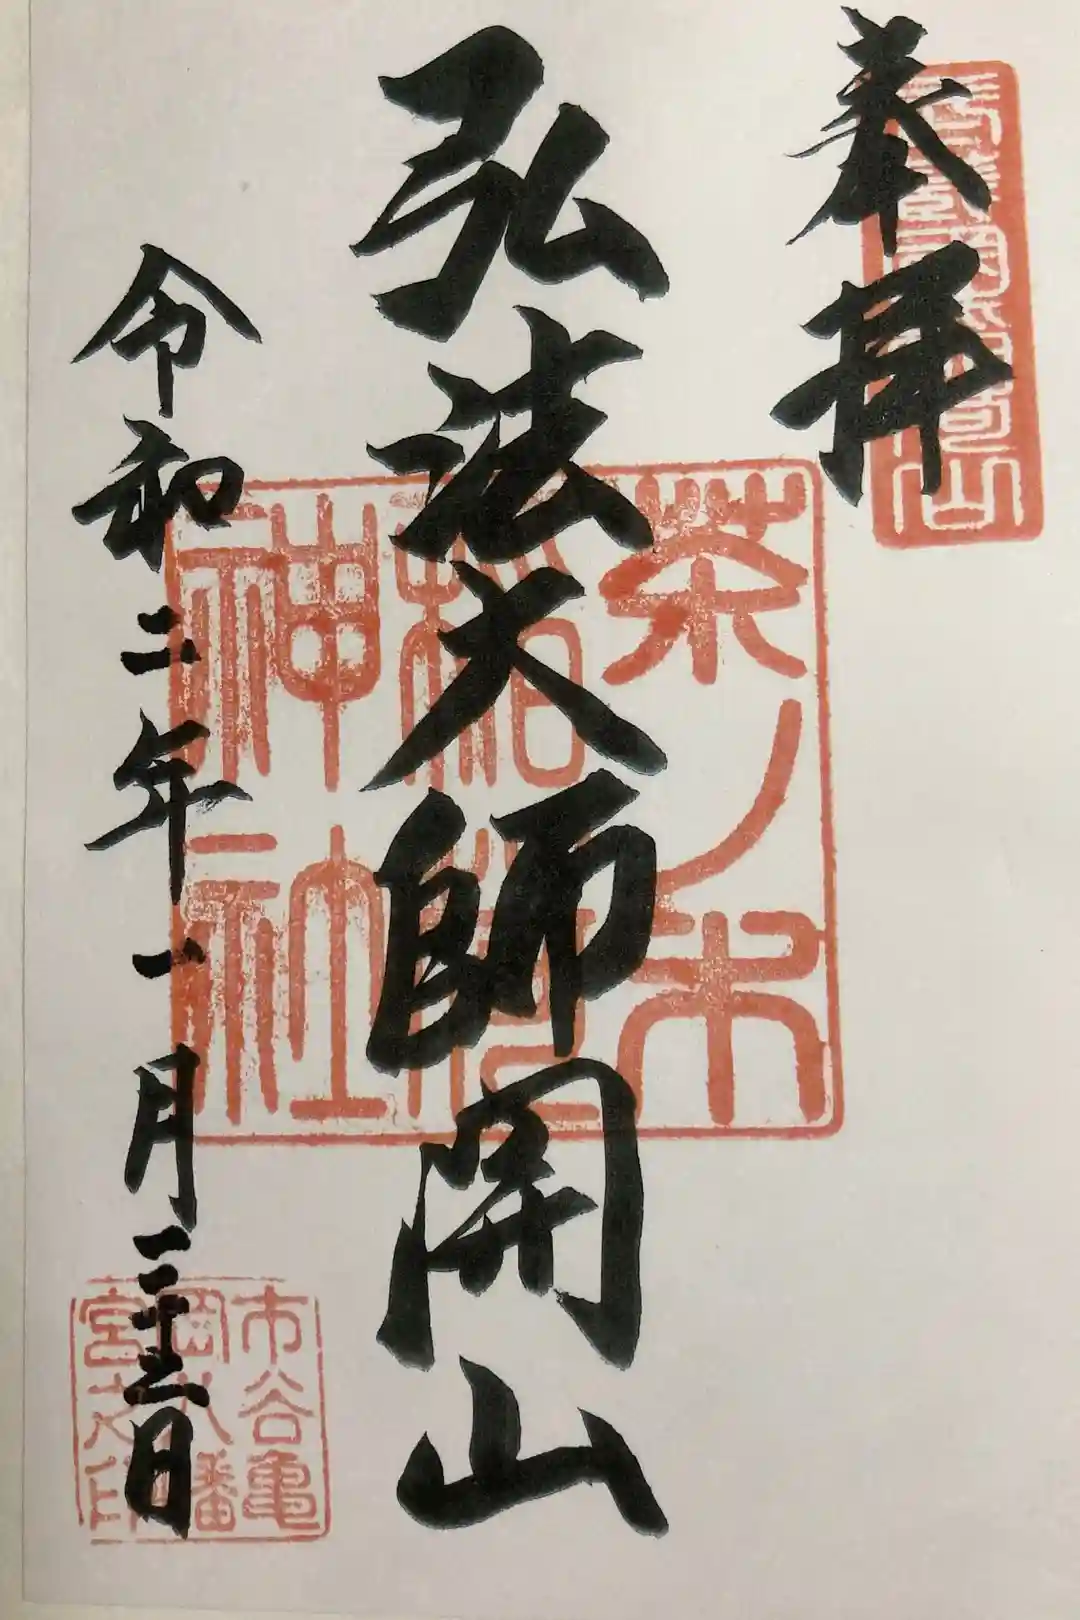 奉拝
弘法大師開山
茶ノ木
稲荷
神社
令和二年一月二十二日
市谷亀
岡八幡
宮之印